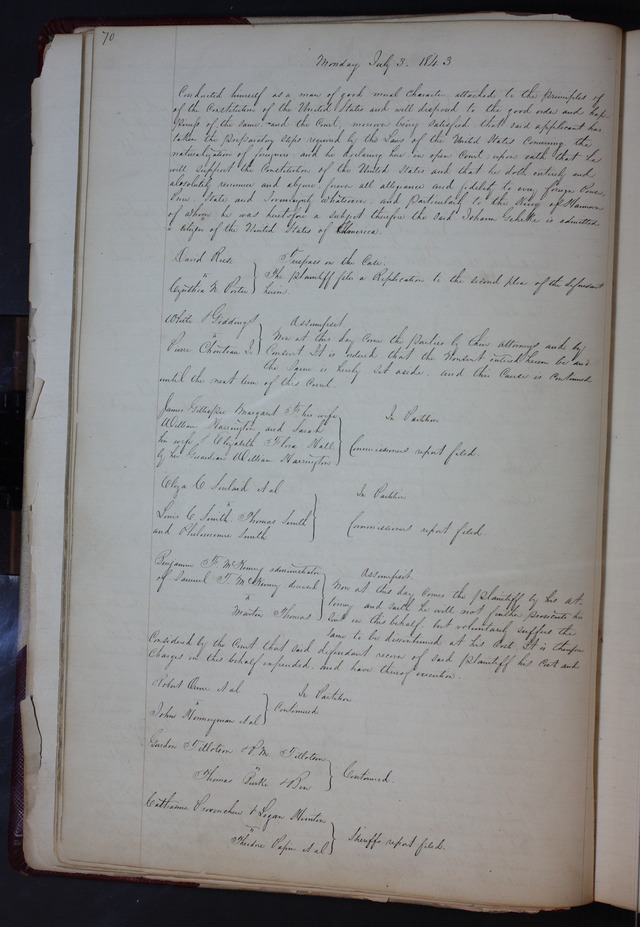 70
Monday July 3. 1843
Conducted himself as a man of good moral character attached to the principles of
of the Constitution of the United States and well disposed to the good order and hap
piness of the same. and the Court, moreover being satisfied that said applicant has
taken the preparatory steps required by the Laws of the United States concerning the
naturalization of foreigners and he declaring here in open Court upon oath that he
will support the Constitution of the United States and that he doth entirely and
absolutely renounce and abjure forever all allegiance and fidelity to every foreign Power,
Prince, State and Sovereignty whatsoever, and particularly to the King of Hanover
of whom he was heretofore a subject therefore the said Johann is admitted
a Citizen of the United States of America.
David Rice
Trespass on the Case.
vs
The plaintiff files a Replication to the second plea of the defendant
Cynthia N. Porter
herein.
White & Giddings
Assumpsit
vs
Now at this day come the parties by their attorneys and by
Pierre Chouteau Jr.
Consent It is ordered that the Nonsuit entered herein be and
the same is hereby set aside. and this Cause is Continued
until the next term of this Court.
James Gillespie Margaret F. his wife
William Harrington and Sarah
In Partition
his wife & Elizabeth Flora Hall
by her Guardian William Harrington
Commissioners report filed.
Eliza C Soulard et al
In Partition
vs
Louis C Smith. Thomas Smith
Commissioners report filed.
and Philomenie Smith
Benjamin F. McKenny administrator
Assumpsit.
of Samuel T. McKenny deceased
Now at this day comes the plaintiff by his at
vs
torney and saith he will not further prosecute his
Martin Thomas
Suit in this behalf, but voluntarily suffers the
same to be discontinued at his Cost. It is therefore
Considered by the Court that said defendant recover of said plaintiff his Cost and
Charges in this behalf expended. and have thereof execution.
Robert Orme et al
In Partition
vs
Continued
John Honeyman et al
Gordon Tillotson & P.M. Tillotson
vs
Continued.
Thomas Burke &
Catharine Provenchere & Logan Hunton
vs
Sheriffs report filed.
Theodore Papin et al